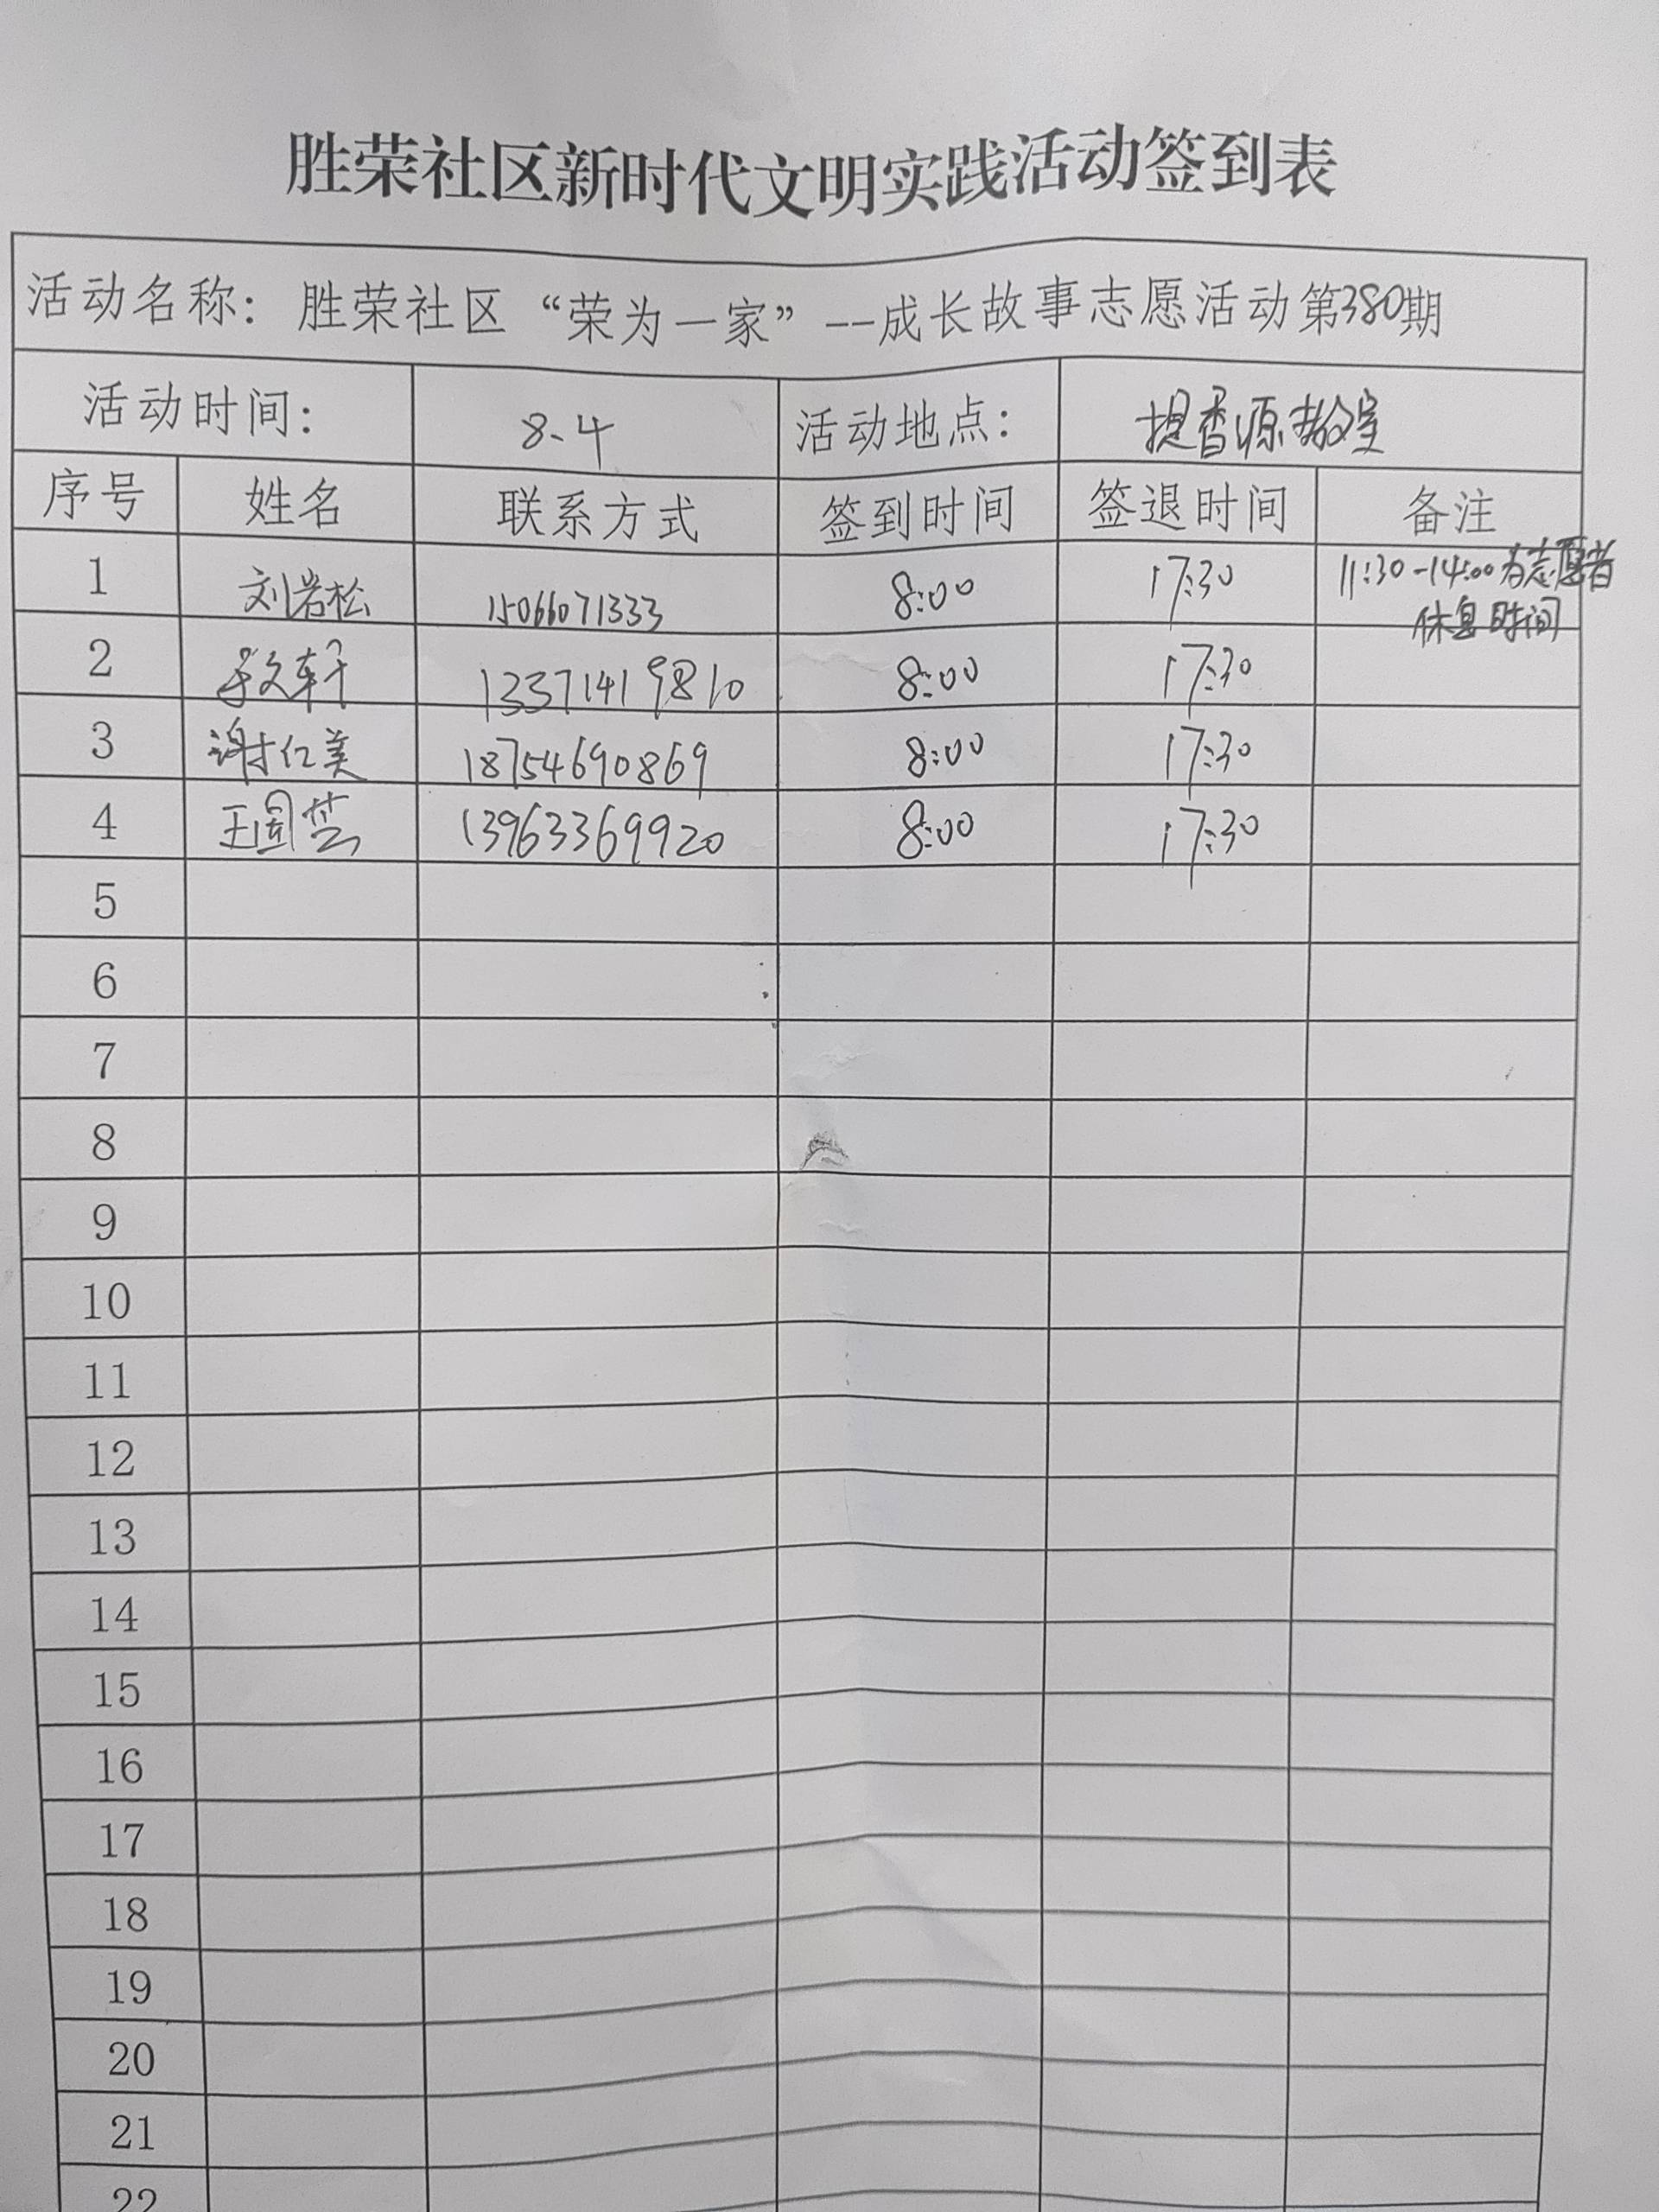 胜荣社区新时代文明实践活动签到表
活动名称：胜荣社区“荣为一家”--成长故事志愿活动第380期
活动时间： 8.4 活动地点： 提香源教室
序号 姓名 联系方式 签到时间 签退时间 备注
1 刘岩松 15066071333 8:00 17:30 11:30-14:00为志愿者
休息时间
2 文轩 13371419810 8:00 17:30
3 谢仁美 18754690869 8:00 17:30
4 王圆芸 13963369920 8:00 17:30
5
6
7
8
9
10
11
12
13
14
15
16
17
18
19
20
21
22